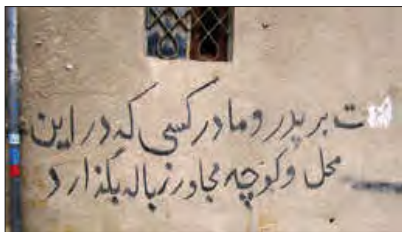 ت بر پدر و مادر کسی که در این
محل و کوچه مجاور زباله بگذارد